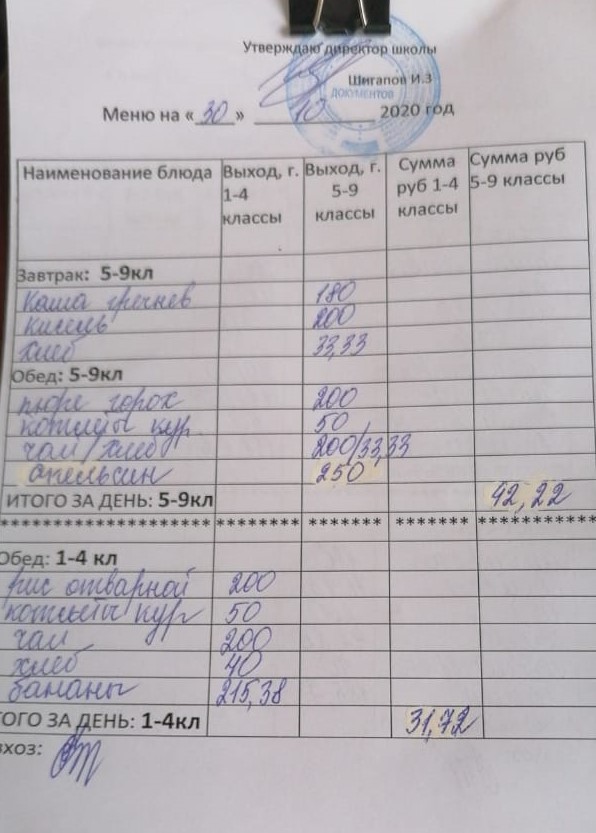 Утверждаю директор школы
Шигапов И.З
ДОКУМЕНТОВ
Меню на «30» 10 2020 год
Наименование блюда Выход, г. 1-4 классы Выход, г. 5-9 классы Сумма руб 1-4 классы Сумма руб 5-9 классы
Завтрак: 5-9кл
Каша гречнев 180
кисель 200
хлеб 33,33
Обед: 5-9кл
пюре горох 200
котлеты кур 50
чай/хлеб 200/33,33
апельсин 250
ИТОГО ЗА ДЕНЬ: 5-9кл 42,22
******************** ******** ******* ******* ***********
Обед: 1-4 кл
рис отварной 200
котлеты кур 50
чай 200
хлеб 40
бананы 215,38
ТОГО ЗА ДЕНЬ: 1-4кл 31,72
вхоз: